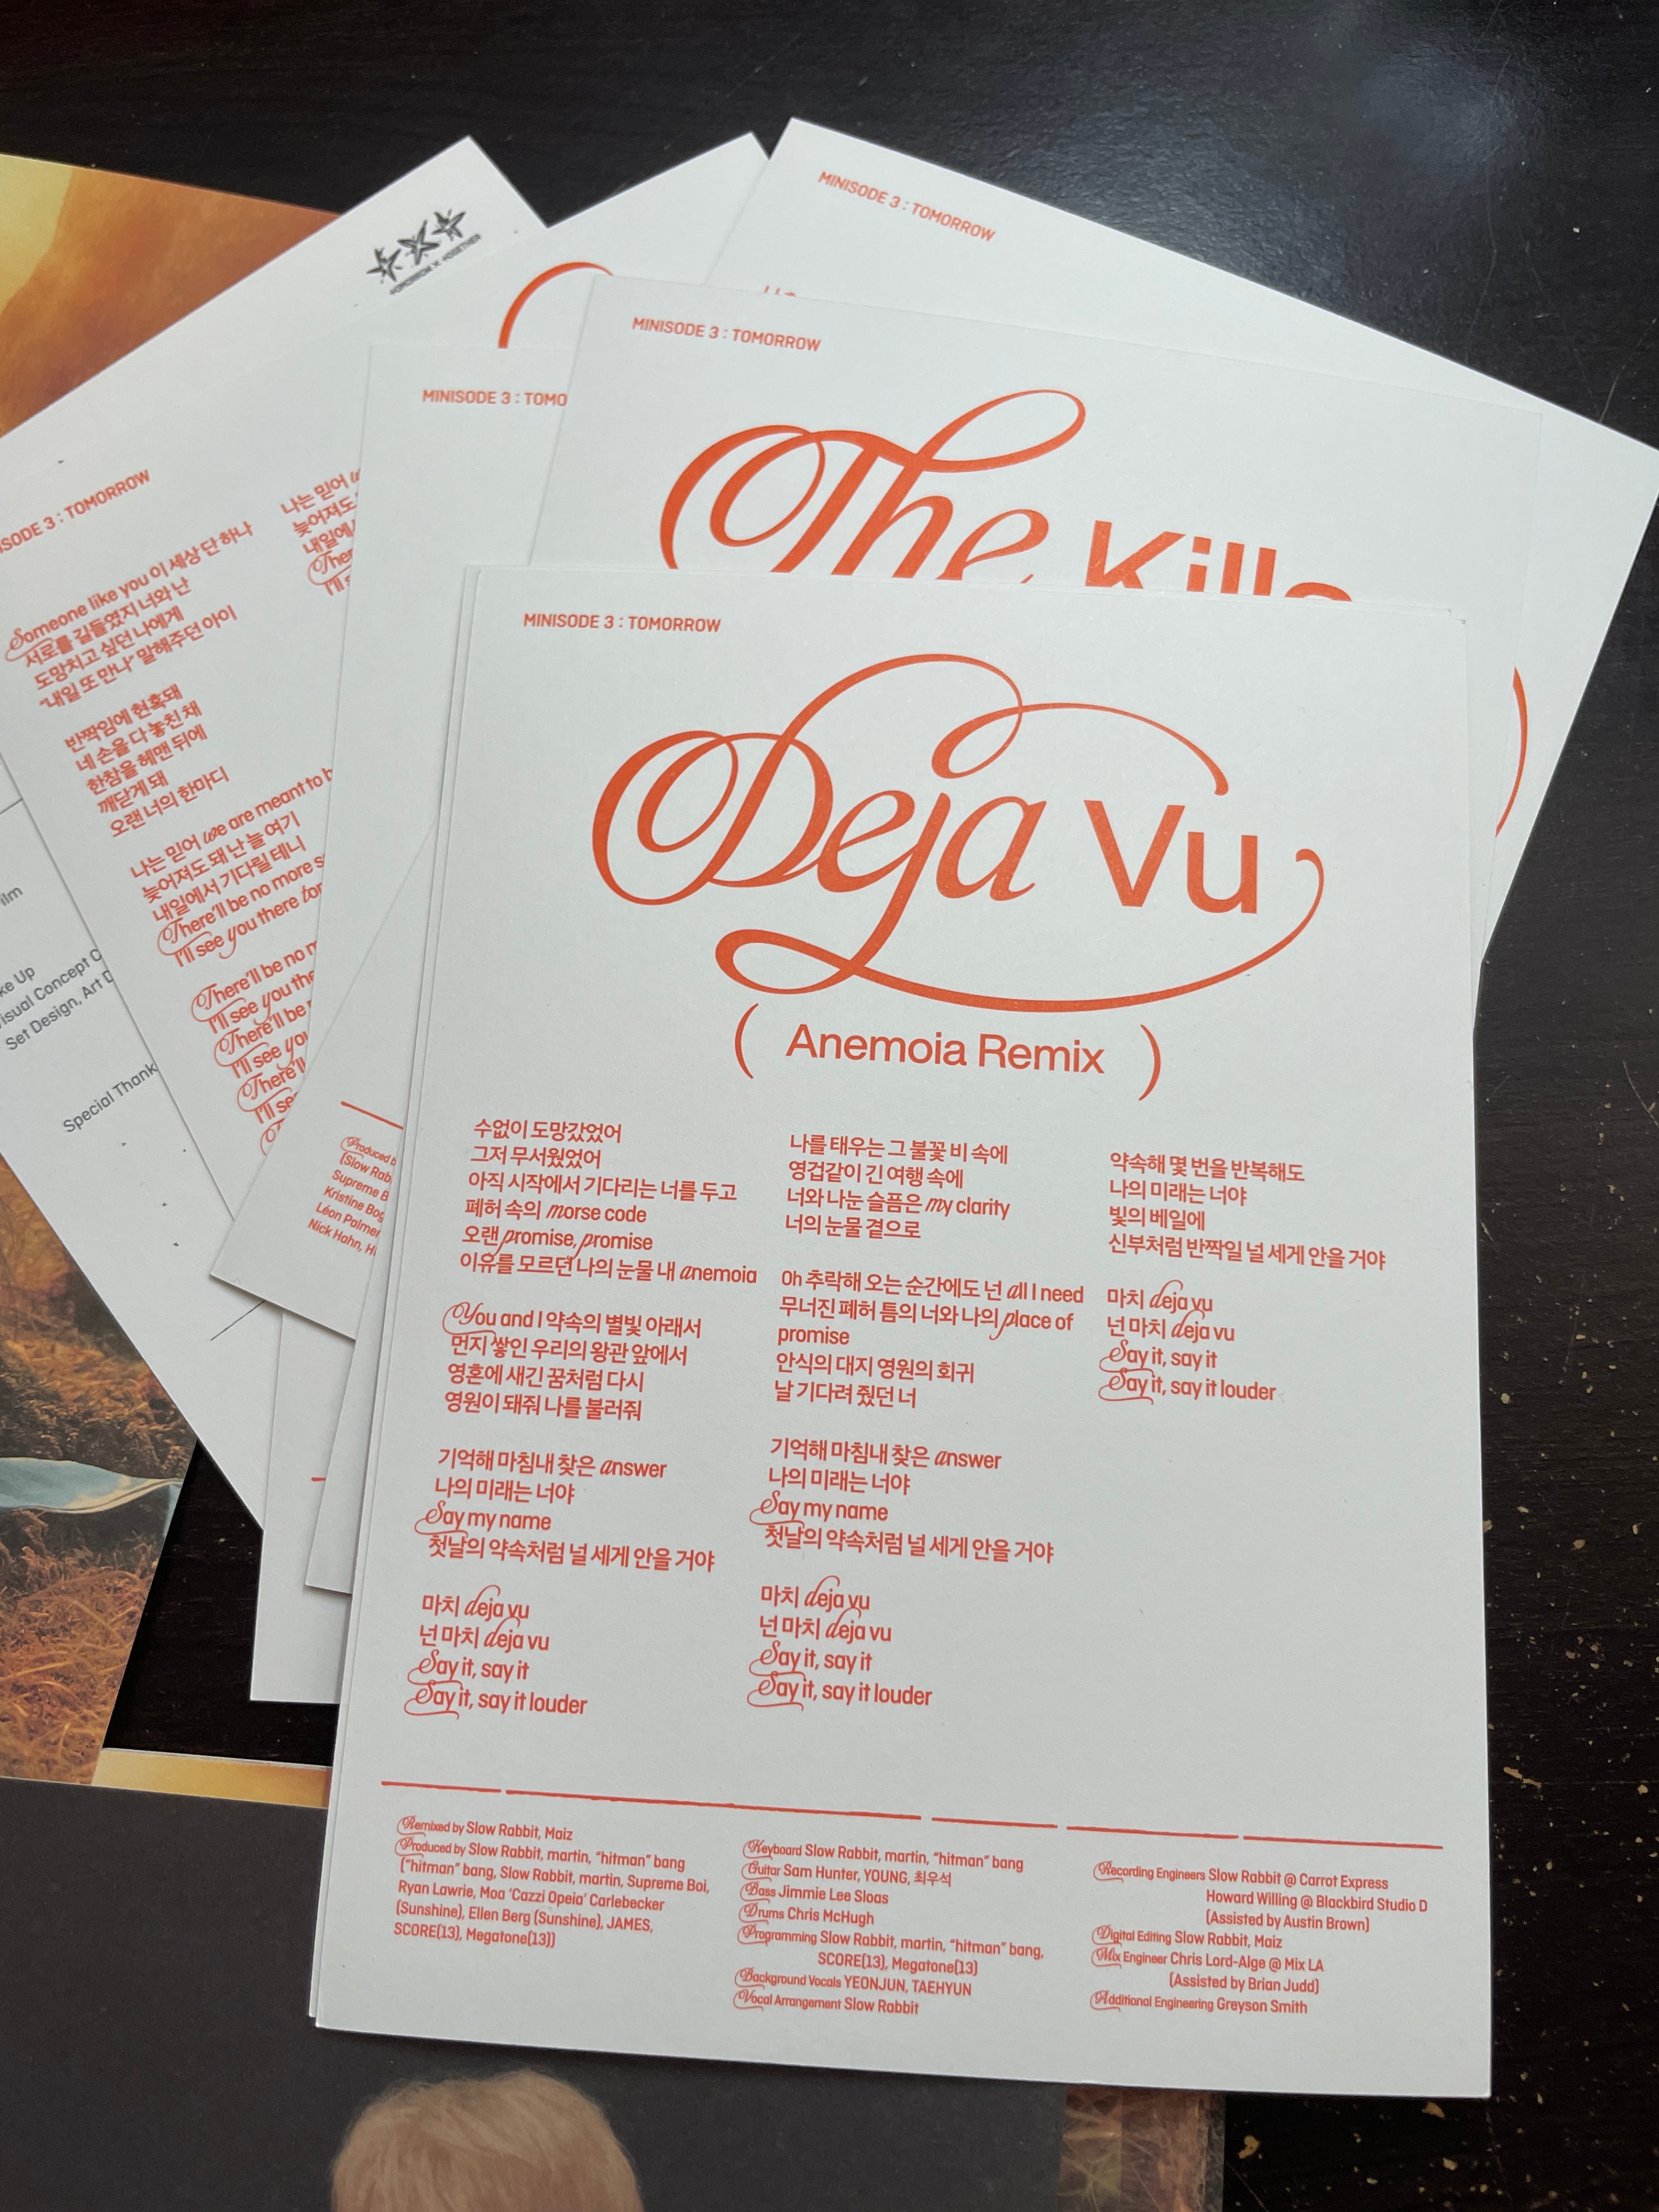 TOMORROW X TOGETHER
MINISODE 3 : TOMORROW
MINISODE 3 : TOMORROW
The
MINISODE 3 : TOMO
3 : TOMORROW
Someone like you 이 세상 단 하나
서로를 길들였지 너와 난
도망치고 싶던 나에게
"내일 또 만나" 말해주던 아이
반짝임에 현혹돼
네 손을 다 놓친 채
한참을 헤맨 뒤에
깨닫게 돼
오랜 너의 한마디
나는 믿어 we are meant to
늦어져도 돼 난 늘 여기
내일에서 기다릴 테니
There'll be no more
I'll see you there
There'll be no
I'll see you
There'll be
I'll see you
There'll
I'll see
나는 믿어
늦어져도
내일에
I'll
Set Design, Art
Special
Produced
(Slow
Supreme
Kristine
Léon Palmer
Nick Hahn,
MINISODE 3 : TOMORROW
Deja Vu
( Anemoia Remix )
수없이 도망갔었어
그저 무서웠었어
아직 시작에서 기다리는 너를 두고
폐허 속의 morse code
오랜 promise, promise
이유를 모르던 나의 눈물 내 anemoia
You and I 약속의 별빛 아래서
먼지 쌓인 우리의 왕관 앞에서
영혼에 새긴 꿈처럼 다시
영원이 돼줘 나를 불러줘
기억해 마침내 찾은 answer
나의 미래는 너야
Say my name
첫날의 약속처럼 널 세게 안을 거야
마치 deja vu
넌 마치 deja vu
Say it, say it
Say it, say it louder
나를 태우는 그 불꽃 비 속에
영겁같이 긴 여행 속에
너와 나눈 슬픔은 my clarity
너의 눈물 곁으로
Oh 추락해 오는 순간에도 넌 all I need
무너진 폐허 틈의 너와 나의 place of
promise
안식의 대지 영원의 회귀
날 기다려 줬던 너
기억해 마침내 찾은 answer
나의 미래는 너야
Say my name
첫날의 약속처럼 널 세게 안을 거야
마치 deja vu
넌 마치 deja vu
Say it, say it
Say it, say it louder
약속해 몇 번을 반복해도
나의 미래는 너야
빛의 베일에
신부처럼 반짝일 널 세게 안을 거야
마치 deja vu
넌 마치 deja vu
Say it, say it
Say it, say it louder
Remixed by Slow Rabbit, Maiz
Produced by Slow Rabbit, martin, "hitman" bang
("hitman" bang, Slow Rabbit, martin, Supreme Boi,
Ryan Lawrie, Moa 'Cazzi Opeia' Carlebecker
(Sunshine), Ellen Berg (Sunshine), JAMES,
SCORE(13), Megatone(13))
Keyboard Slow Rabbit, martin, "hitman" bang
Guitar Sam Hunter, YOUNG, 최우석
Bass Jimmie Lee Sloas
Drums Chris McHugh
Programming Slow Rabbit, martin, "hitman" bang,
SCORE(13), Megatone(13)
Background Vocals YEONJUN, TAEHYUN
Vocal Arrangement Slow Rabbit
Recording Engineers Slow Rabbit @ Carrot Express
Howard Willing @ Blackbird Studio D
(Assisted by Austin Brown)
Digital Editing Slow Rabbit, Maiz
Mix Engineer Chris Lord-Alge @ Mix LA
(Assisted by Brian Judd)
Additional Engineering Greyson Smith